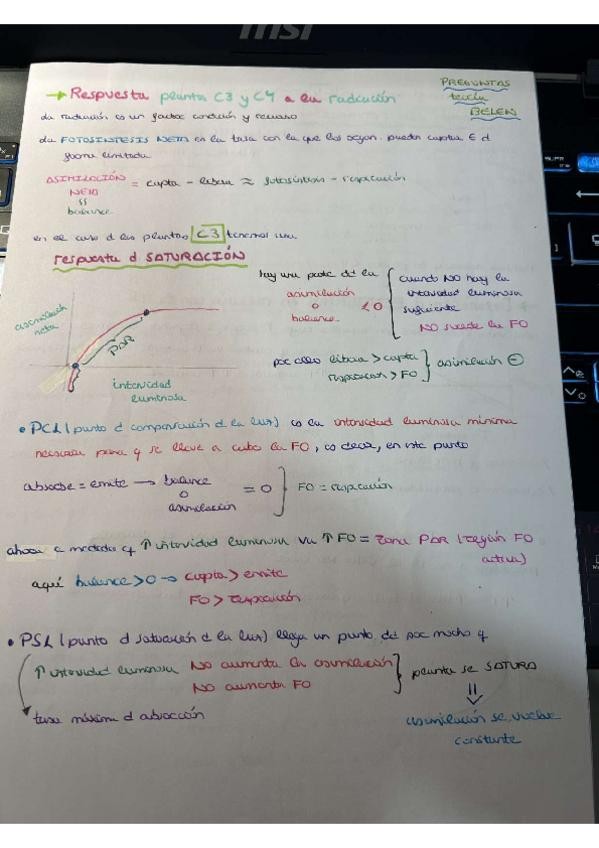 msi
PREGUNTAS
teoría
BELEN
→ Respuesta planta C3 y C4 a la radiación
la radiación es un factor condición y recurso
la FOTOSINTESIS NETA es la tasa con la que los organ. pueden captar E d
forma limitada
ASIMILACIÓN
NETA
= capta - libera ≈ fotosíntesis - respiración
balance
en el caso d las plantas C3 tenemos una
respuesta d SATURACIÓN
asimilación
neta
PAR
intensidad
luminosa
hay una parte de la
asimilación
o
balance
< 0
cuando NO hay la
intensidad luminosa
suficiente
NO sucede la FO
por ello libera > capta
respiración > FO
asimilación ⊖
• PCL (punto d compensación d la luz) es la intensidad luminosa mínima
necesaria para q se lleve a cabo la FO, es decir, en este punto
absorbe = emite → balance
o
asimilación
= 0
FO = respiración
ahora a medida q ↑ intensidad luminosa va ↑ FO = zona PAR (región FO
activa)
aquí balance > 0 → capta > emite
FO > respiración
• PSL (punto d saturación d la luz) llega un punto dd por mucho q
↑ intensidad luminosa NO aumenta la asimilación
NO aumenta FO
planta se SATURA
tasa máxima d absorción
asimilación se vuelve
constante